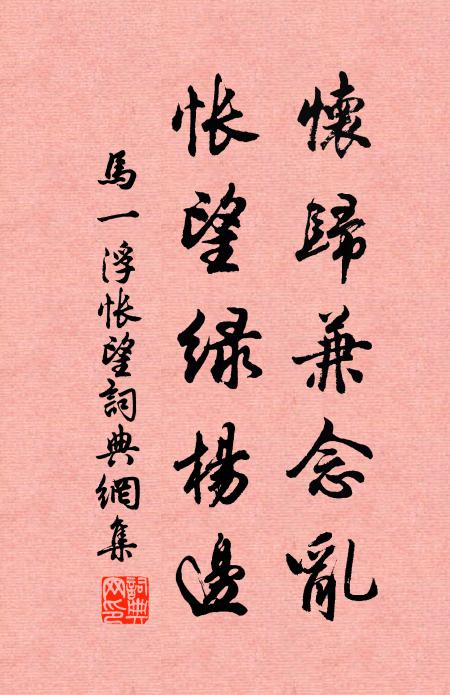 懷歸兼念亂
悵望綠楊邊
馬一浮悵望詞典網集
詞典網印